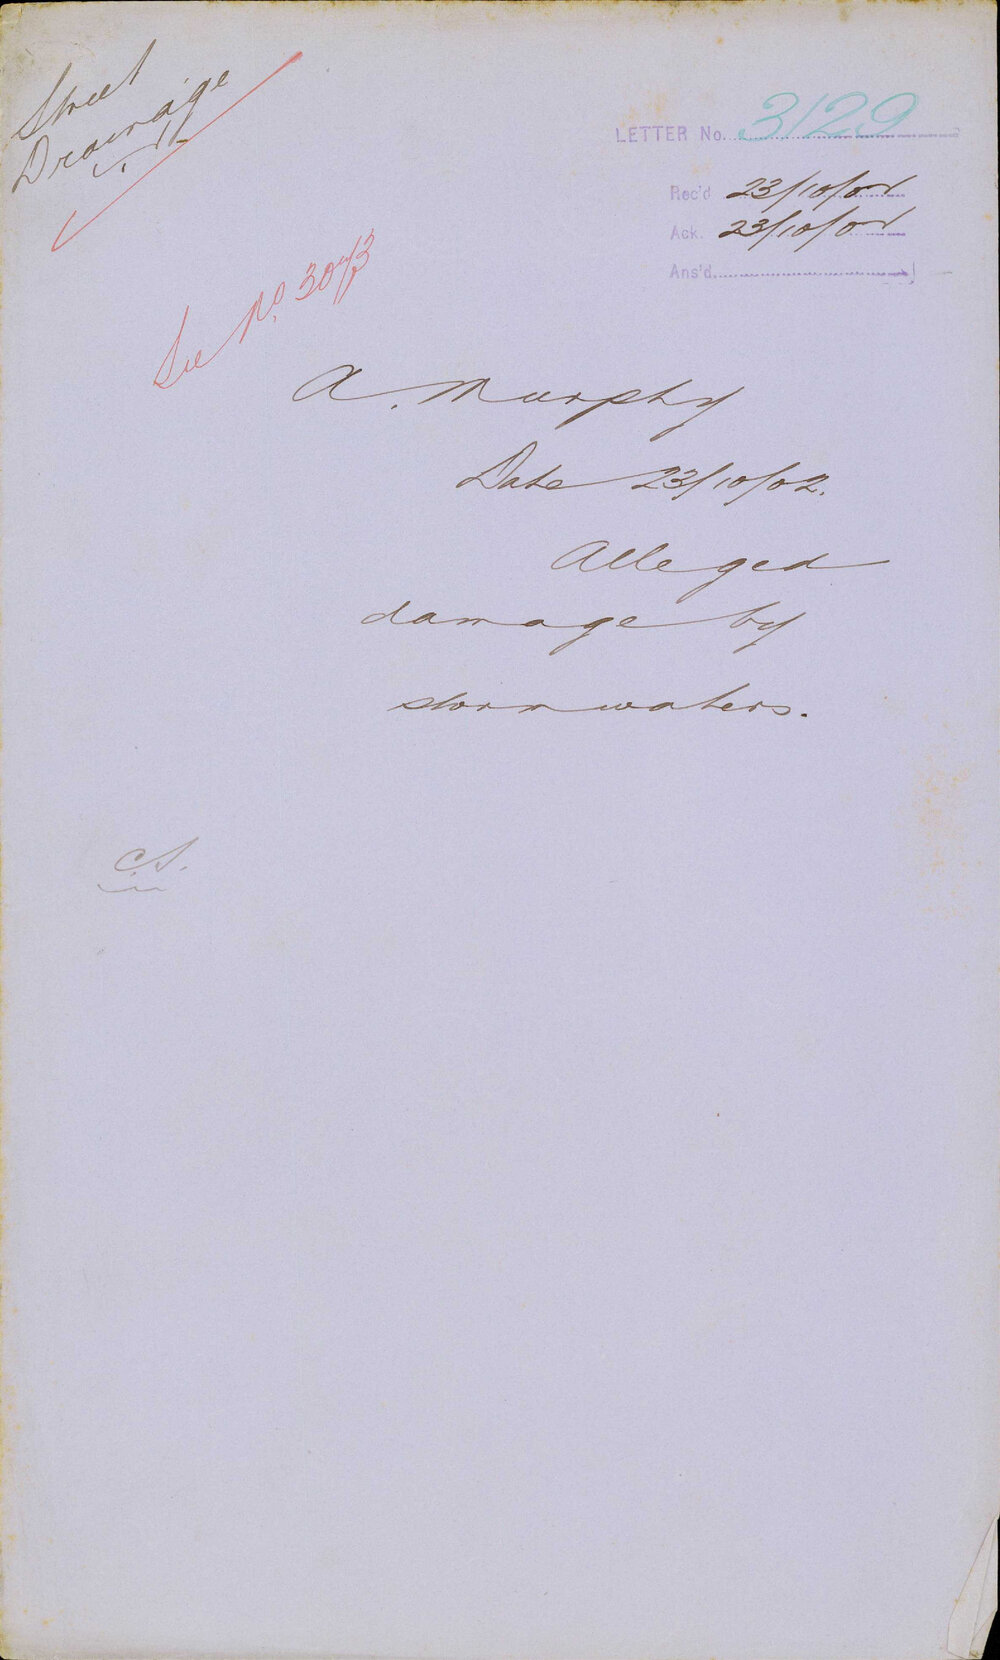 Street
Drainage
LETTER No. 3129
Rec'd 23/10/02
Ack. 23/10/02
Ans'd
See No. 3073
A. Murphy
Date 23/10/02.
Alleged
damage by
storm waters.
C.S.